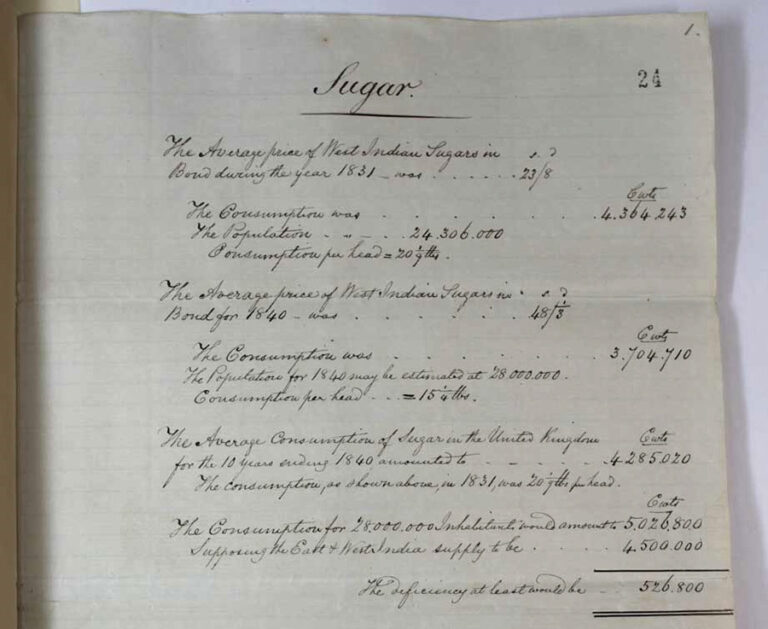 1.
24
Sugar.
The Average price of West Indian Sugars in s. d
Bond during the year 1831 - was . . . . . 23/8
Cwts
The Consumption was . . . . . . . 4.364.243
The Population . „ - . . 24.306.000
Consumption per head = 20 1/9 lbs.
The Average price of West Indian Sugars in s. d
Bond for 1840 - was . . . . . . 48/
Cwts
The Consumption was . . . . . . . 3.704.710
The Population for 1840 may be estimated at 28.000.000.
Consumption per head . . . = 15 1/4 lbs.
The Average Consumption of Sugar in the United Kingdom Cwts
for the 10 years ending 1840, amounted to - . - . - . 4.285.020
The consumption, as shown above, in 1831, was 20 1/9 lbs per head.
Cwts
The Consumption for 28.000.000 Inhabitants would amount to 5,026,800
Supposing the East & West India supply to be . . . . 4.500.000
The deficiency at least would be - . 526.800